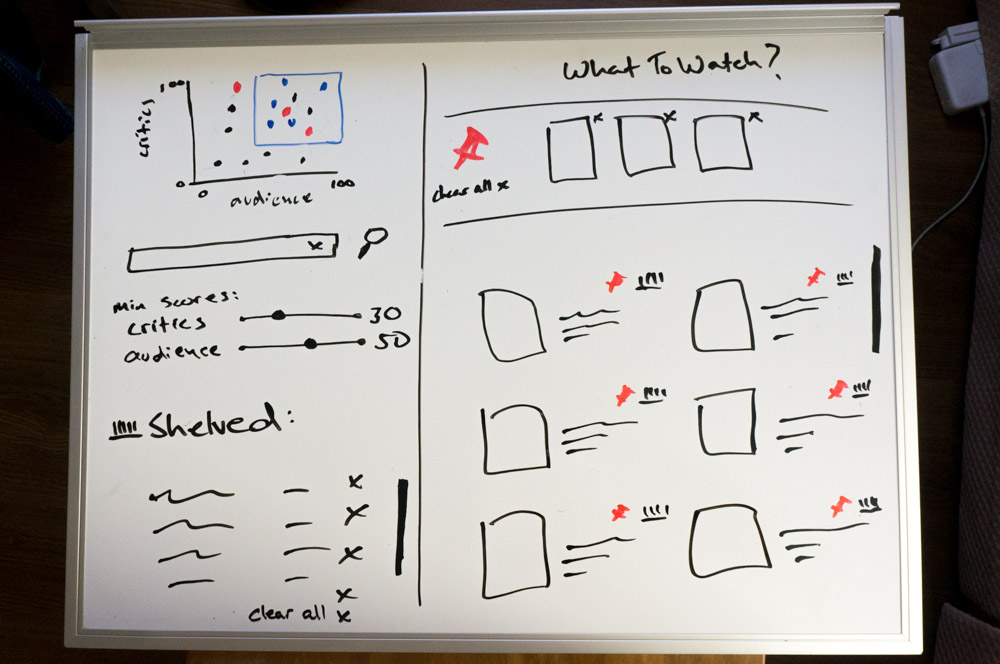 100
critics
0
0
100
audience
x
min scores:
critics 30
audience 50
Shelved:
x
x
x
x
clear all x
What To Watch?
x x x
clear all x